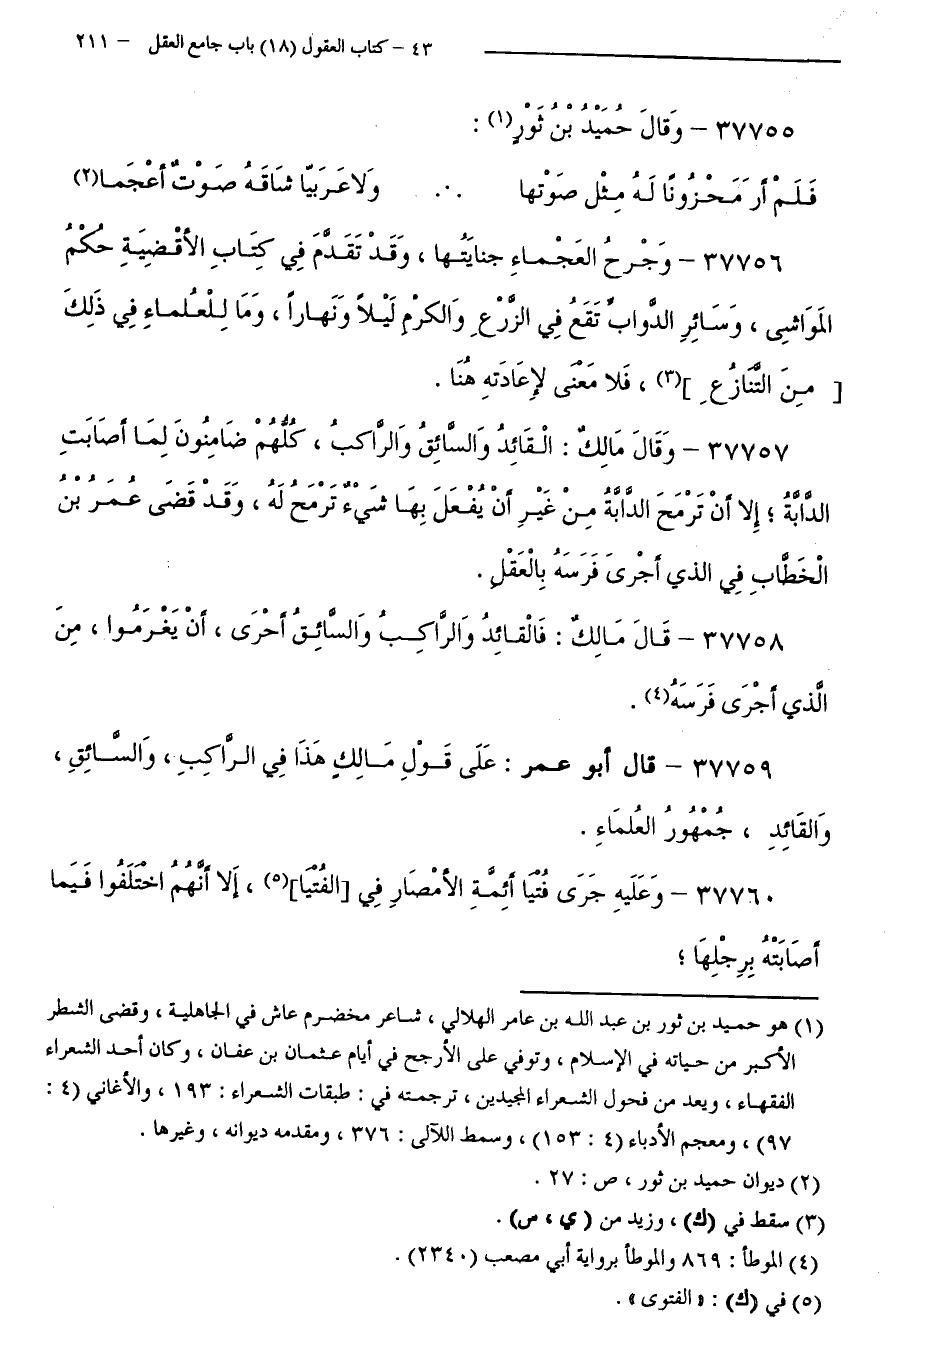 ٤٣ - كتاب العقول (١٨) باب جامع العقل - ٢١١
٣٧٧٥٥ - وَقالَ حُمَيْدُ بْنُ ثَوْرٍ(١) :
فَلَمْ أرَ مَحْزُونًا لَهُ مِثْل صَوْتها ... وَلاعَرَبيّا شاقَهُ صَوْتُ أعْجَما(٢)
٣٧٧٥٦ - وَجْرحُ العَجْماءِ جنايَتُها ، وَقَدْ تَقَدَّمَ فِي كِتَابِ الأقْضِيَةِ حُكْمُ
المَوَاشِي ، وَسَائِرِ الدَّوابِّ تَقَعُ فِي الزَّرْعِ وَالكرْمِ لَيْلاً وَنَهاراً ، وَمَا لِلْعُلماءِ فِي ذَلِكَ
[ مِنَ التَّنَازُعِ ](٣) ، فَلا مَعْنَى لإعَادَتهِ هُنَا .
٣٧٧٥٧ - وَقَالَ مَالِكٌ : الْقائِدُ وَالسَّائِقُ وَالرَّاكبُ ، كُلُّهُمْ ضَامِنُونَ لِمَا أصَابَتِ
الدَّابَّةُ ؛ إِلا أنْ تَرْمَحَ الدَّابَّةُ مِنْ غَيْرِ أنْ يُفْعَلَ بِهَا شَيْءٌ تَرْمَحُ لَهُ ، وَقَدْ قَضَى عُمَرُ بْنُ
الْخَطَّابِ فِي الذي أجْرىَ فَرَسَهُ بِالْعَقْلِ .
٣٧٧٥٨ - قَالَ مَالِكٌ : فَالْقائِدُ وَالرَّاكِبُ وَالسَّائِقُ أحْرَى ، أنْ يَغْرَمُوا ، مِنَ
الَّذي أجْرَى فَرَسَهُ(٤) .
٣٧٧٥٩ - قال أبو عمر : عَلَى قَوْلِ مَالِكٍ هَذَا فِي الرَّاكِبِ ، وَالسَّائِقِ ،
وَالقَائِدِ ، جُمْهُورُ العُلمَاءِ .
٣٧٧٦٠ - وَعَلَيهِ جَرَى فُتْيَا أئِمَّةِ الأمْصَارِ فِي [الفُتْيَا](٥) ، إَلا أنَّهُمُ اخْتَلَفُوا فَيما
أصَابَتْهُ بِرِجْلِهَا ؛
(١) هو حميد بن ثور بن عبد الله بن عامر الهلالي ، شاعر مخضرم عاش في الجاهلية ، وقضى الشطر
الأكبر من حياته في الإسلام ، وتوفي على الأرجح في أيام عثمان بن عفان ، وكان أحد الشعراء
الفقهاء ، ويعد من فحول الشعراء المجيدين ، ترجمته في : طبقات الشعراء : ١٩٣ ، والأغاني (٤ :
٩٧) ، ومعجم الأدباء (٤ : ١٥٣) ، وسمط اللآلى : ٣٧٦ ، ومقدمه ديوانه ، وغيرها .
(٢) ديوان حميد بن ثور ، ص : ٢٧ .
(٣) سقط في (ك) ، وزيد من ( ي ، س) .
(٤) الموطأ : ٨٦٩ والموطأ برواية أبي مصعب (٢٣٤٠) .
(٥) في (ك) : « الفتوى » .